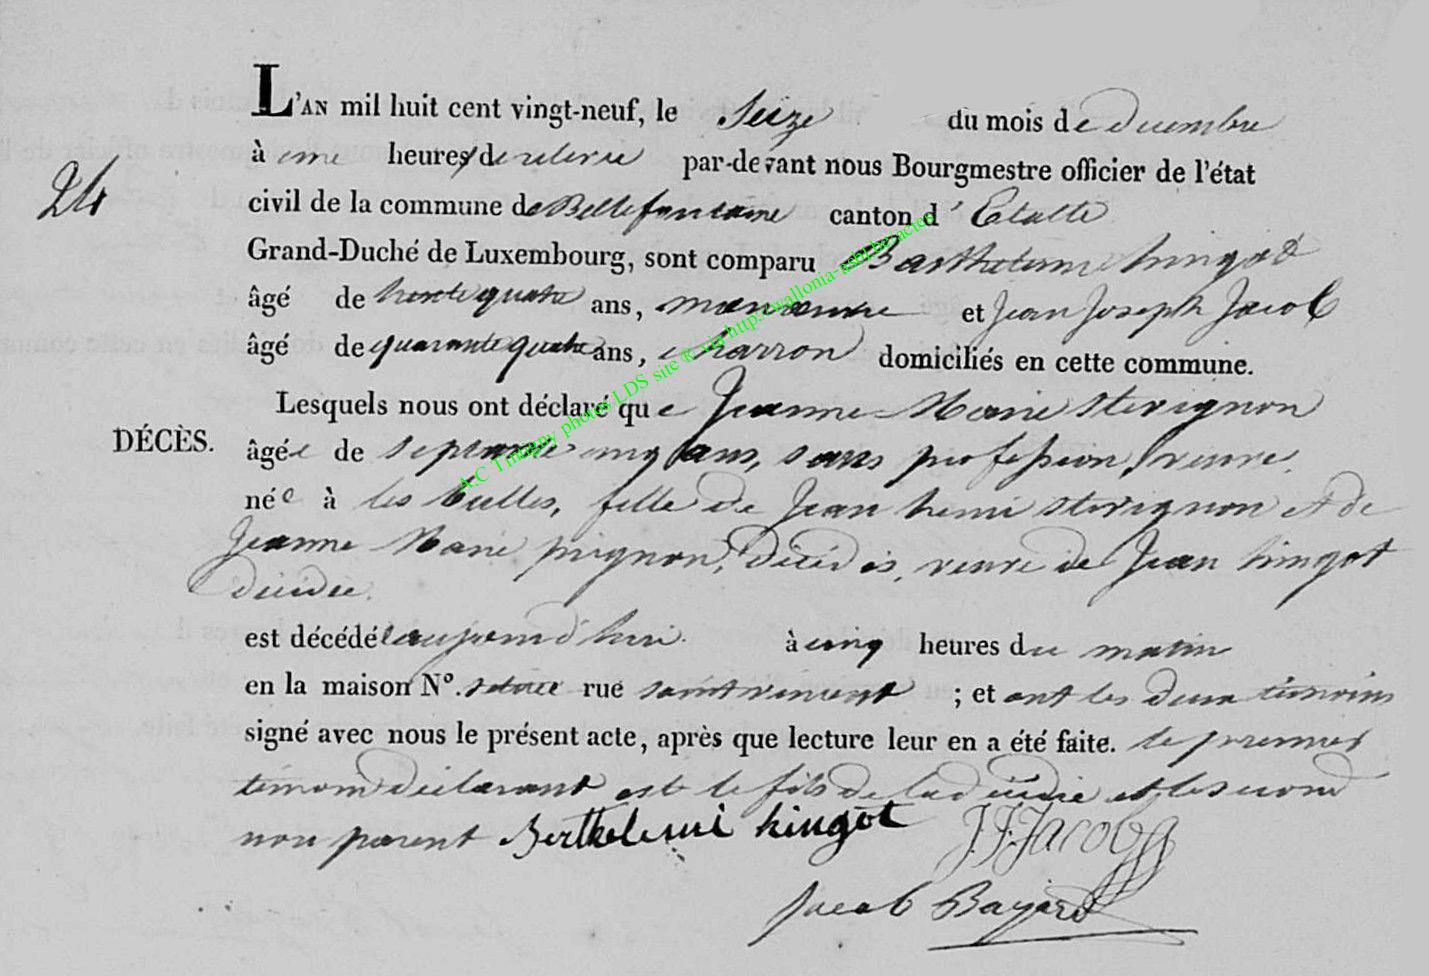 L'AN mil huit cent vingt-neuf, le Seize du mois de decembre
à une heures de relevée par-devant nous Bourgmestre officier de l'état
24
civil de la commune de Bellefontaine canton d' Etalle
Grand-Duché de Luxembourg, sont comparu Barthelemi hingot
âgé de trente quatre ans, manoeuvre et Jean Joseph Jacob
âgé de quarante quatre ans, charron domiciliés en cette commune.
Lesquels nous ont déclaré que Jeanne Marie Stevignon
DÉCÈS.
âgée de septante cinq ans, sans profession, veuve,
née à les bulles, fille de Jean henri Stevignon et de
Jeanne Marie pignon, décédés, veuve de Jean hingot
décédée.
est décédée aujourd'hui à cinq heures du matin
en la maison N°. rue saint vincent ; et ont les deux témoins
signé avec nous le présent acte, après que lecture leur en a été faite. le premier
témoin déclarant est le fils de la décédée et le second
non parent Berthelemi hingot J.J. Jacob
Jacob Bayard
A.C Tintigny photos LDS site © via http://wallonia-asbl.be/actes